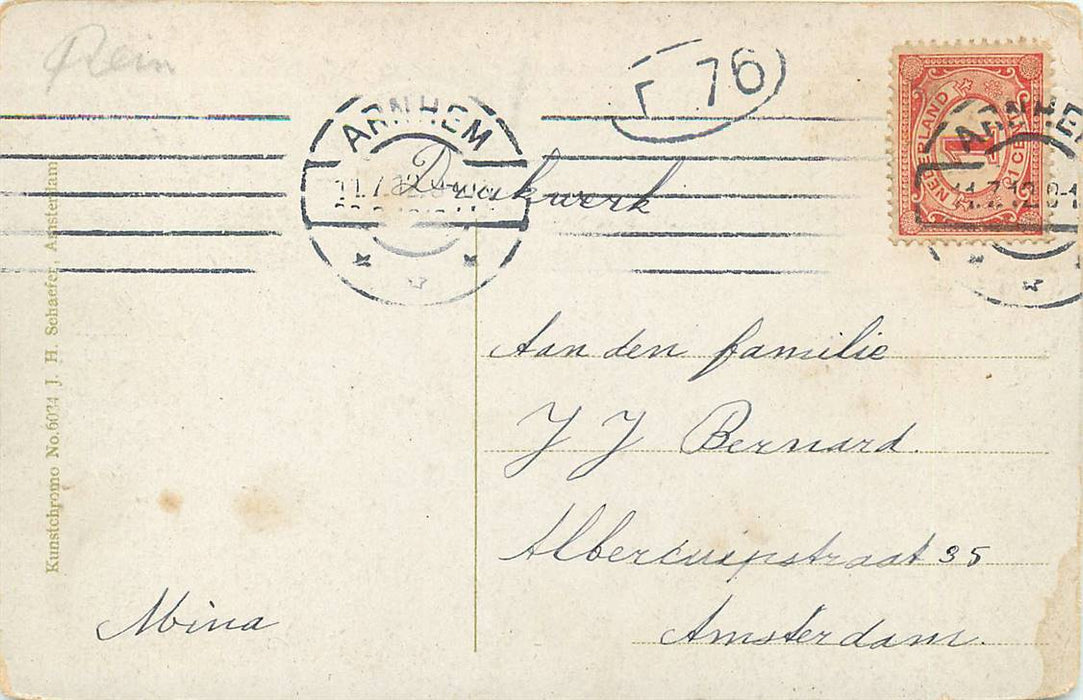 Rein
F 76
ARNHEM
11.7.12.
Drukwerk
NEDERLAND
1
1 CENT
ARNHEM
11.7.12.9-1
Kunstchromo No.6034 J. H. Schaefer, Amsterdam
Aan den familie
J J Bernard.
Albercuipstraat 35
Amsterdam.
Mina